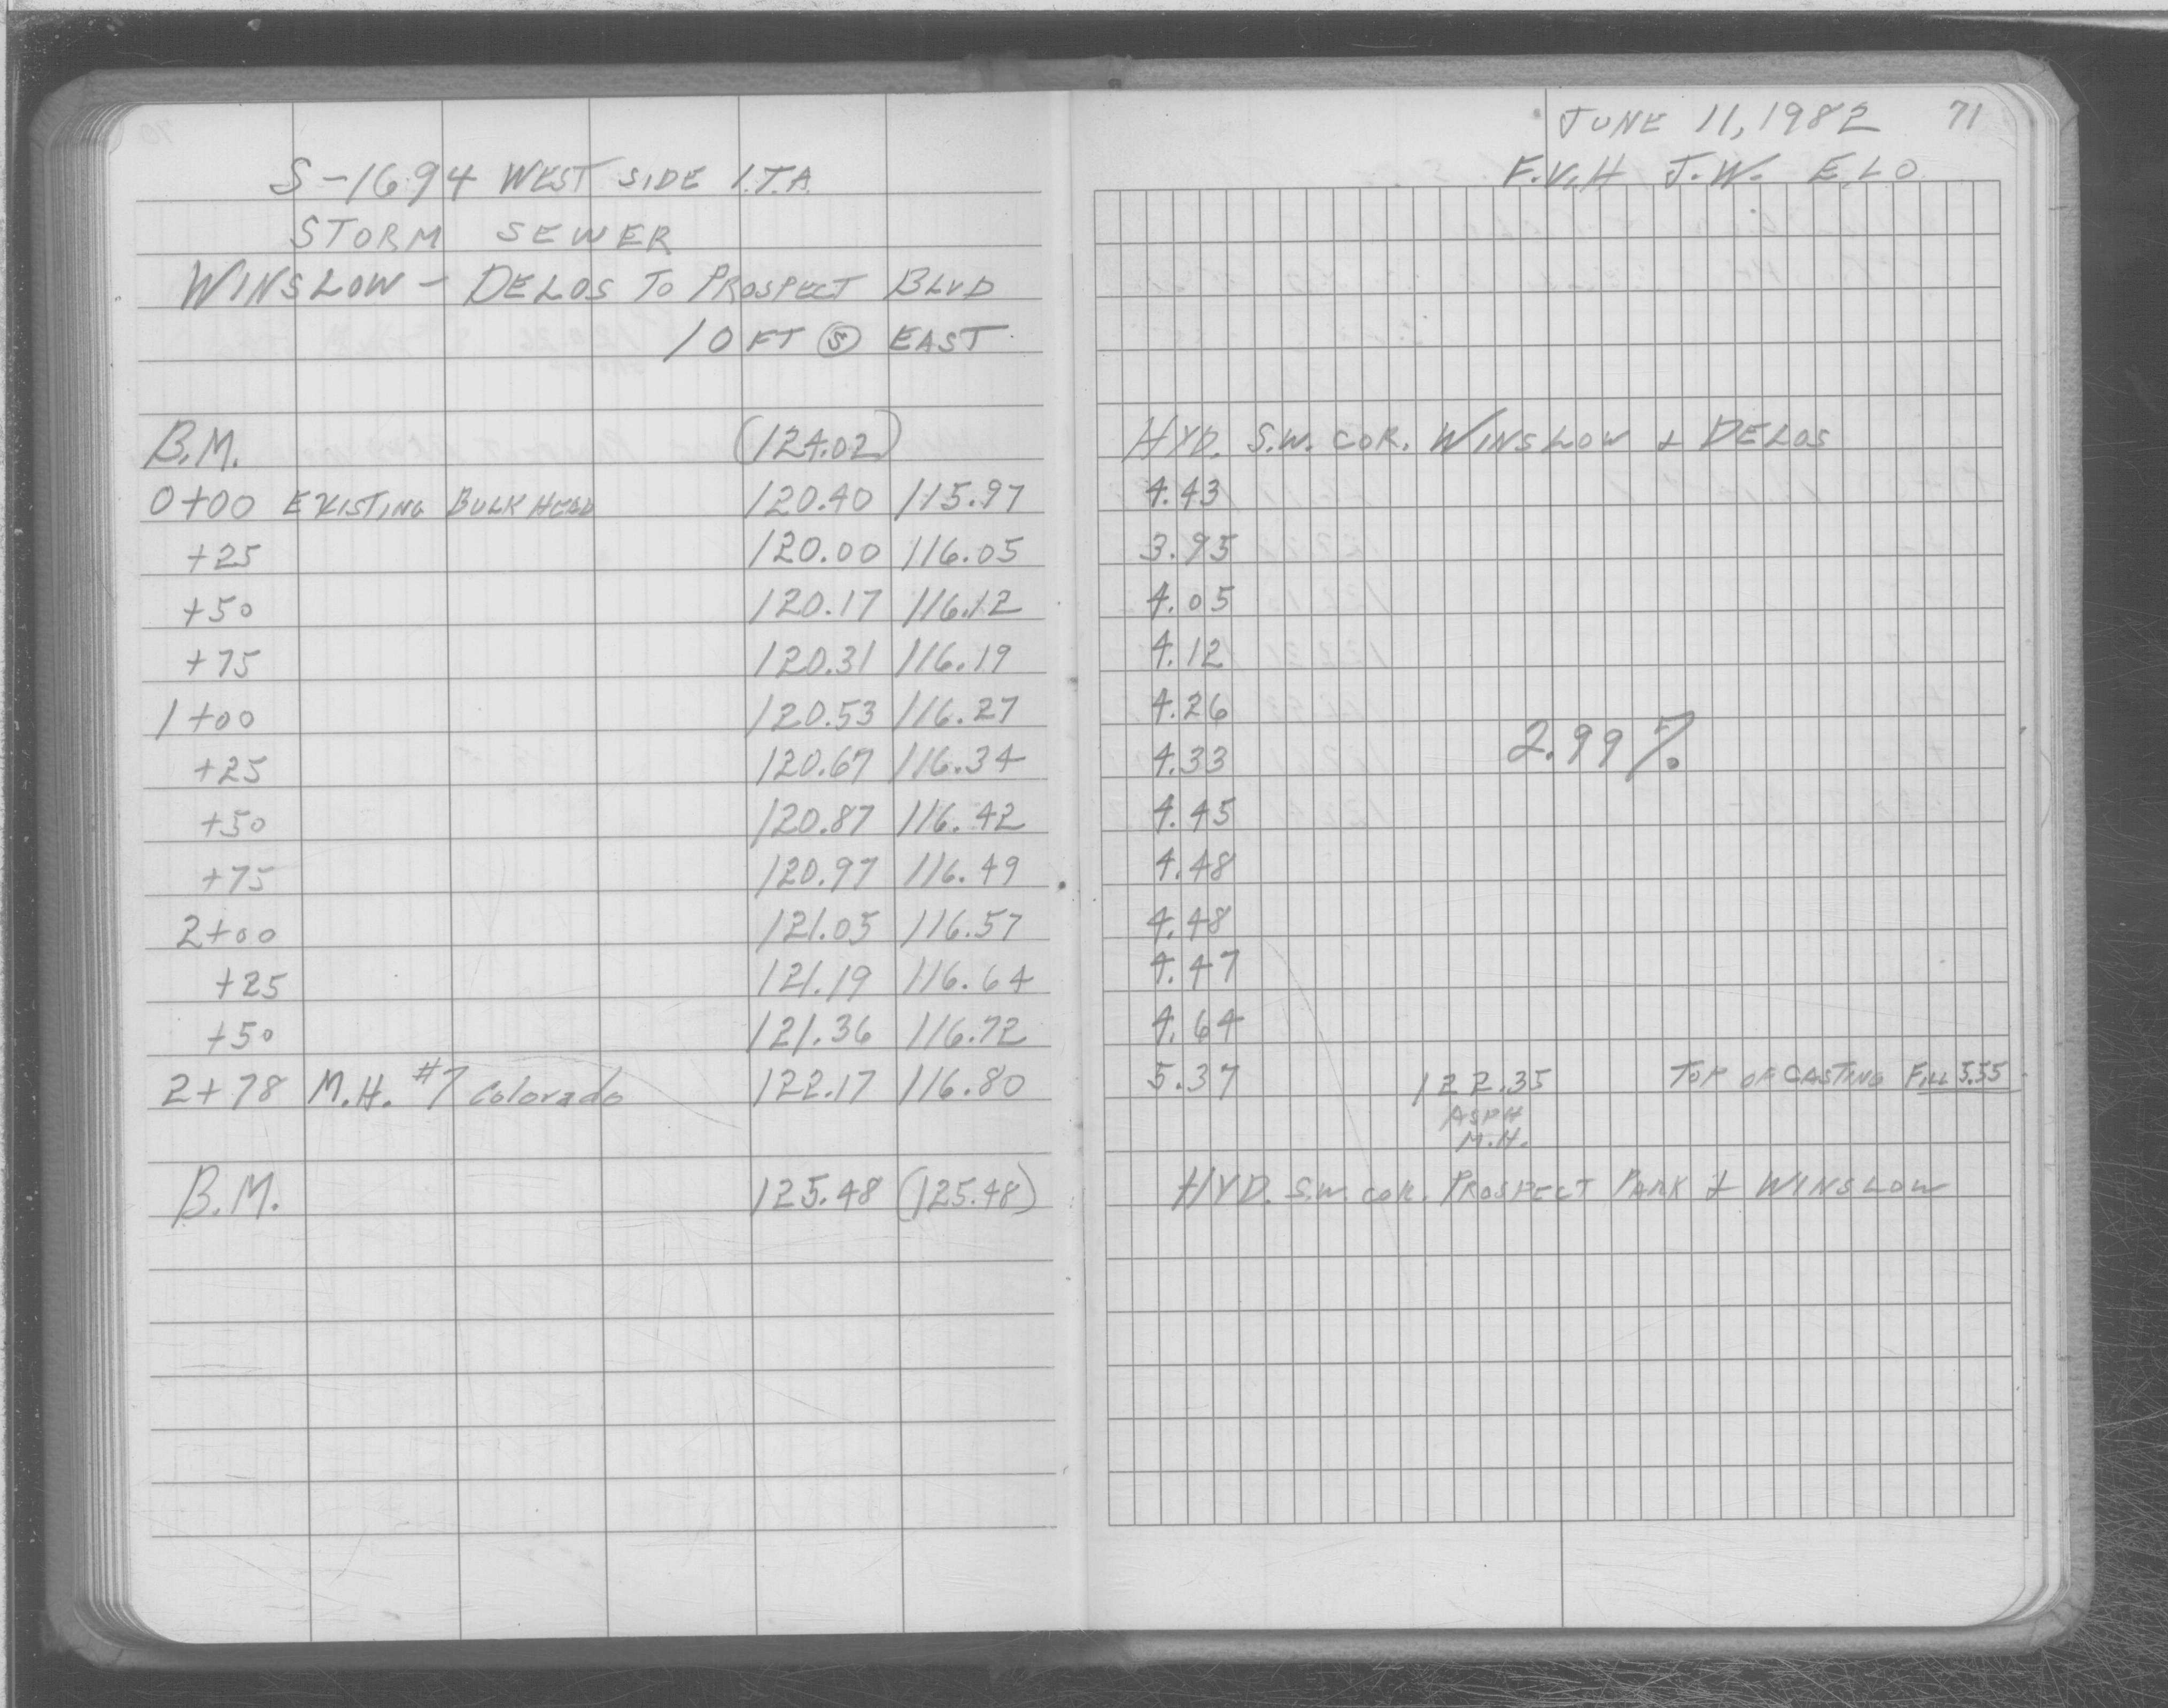 S-1694 WEST SIDE I.T.A.
STORM SEWER
WINSLOW - DELOS TO PROSPECT BLVD
10 FT Ⓢ EAST
B.M. (124.02)
0+00 EXISTING BULK HEAD 120.40 115.97
+25 120.00 116.05
+50 120.17 116.12
+75 120.31 116.19
1+00 120.53 116.27
+25 120.67 116.34
+50 120.87 116.42
+75 120.97 116.49
2+00 121.05 116.57
+25 121.19 116.64
+50 121.36 116.72
2+78 M.H. #7 Colorado 122.17 116.80
B.M. 125.48 (125.48)
JUNE 11, 1982 71
F.V.H J.W. E.L.O
HYD. S.W. COR. WINSLOW & DELOS
4.43
3.95
4.05
4.12
4.26
2.99%
4.33
4.45
4.48
4.48
4.47
4.64
5.37 122.35 TOP OF CASTING FILL 5.55
ASPH
M.H.
HYD. S.W. COR. PROSPECT PARK & WINSLOW